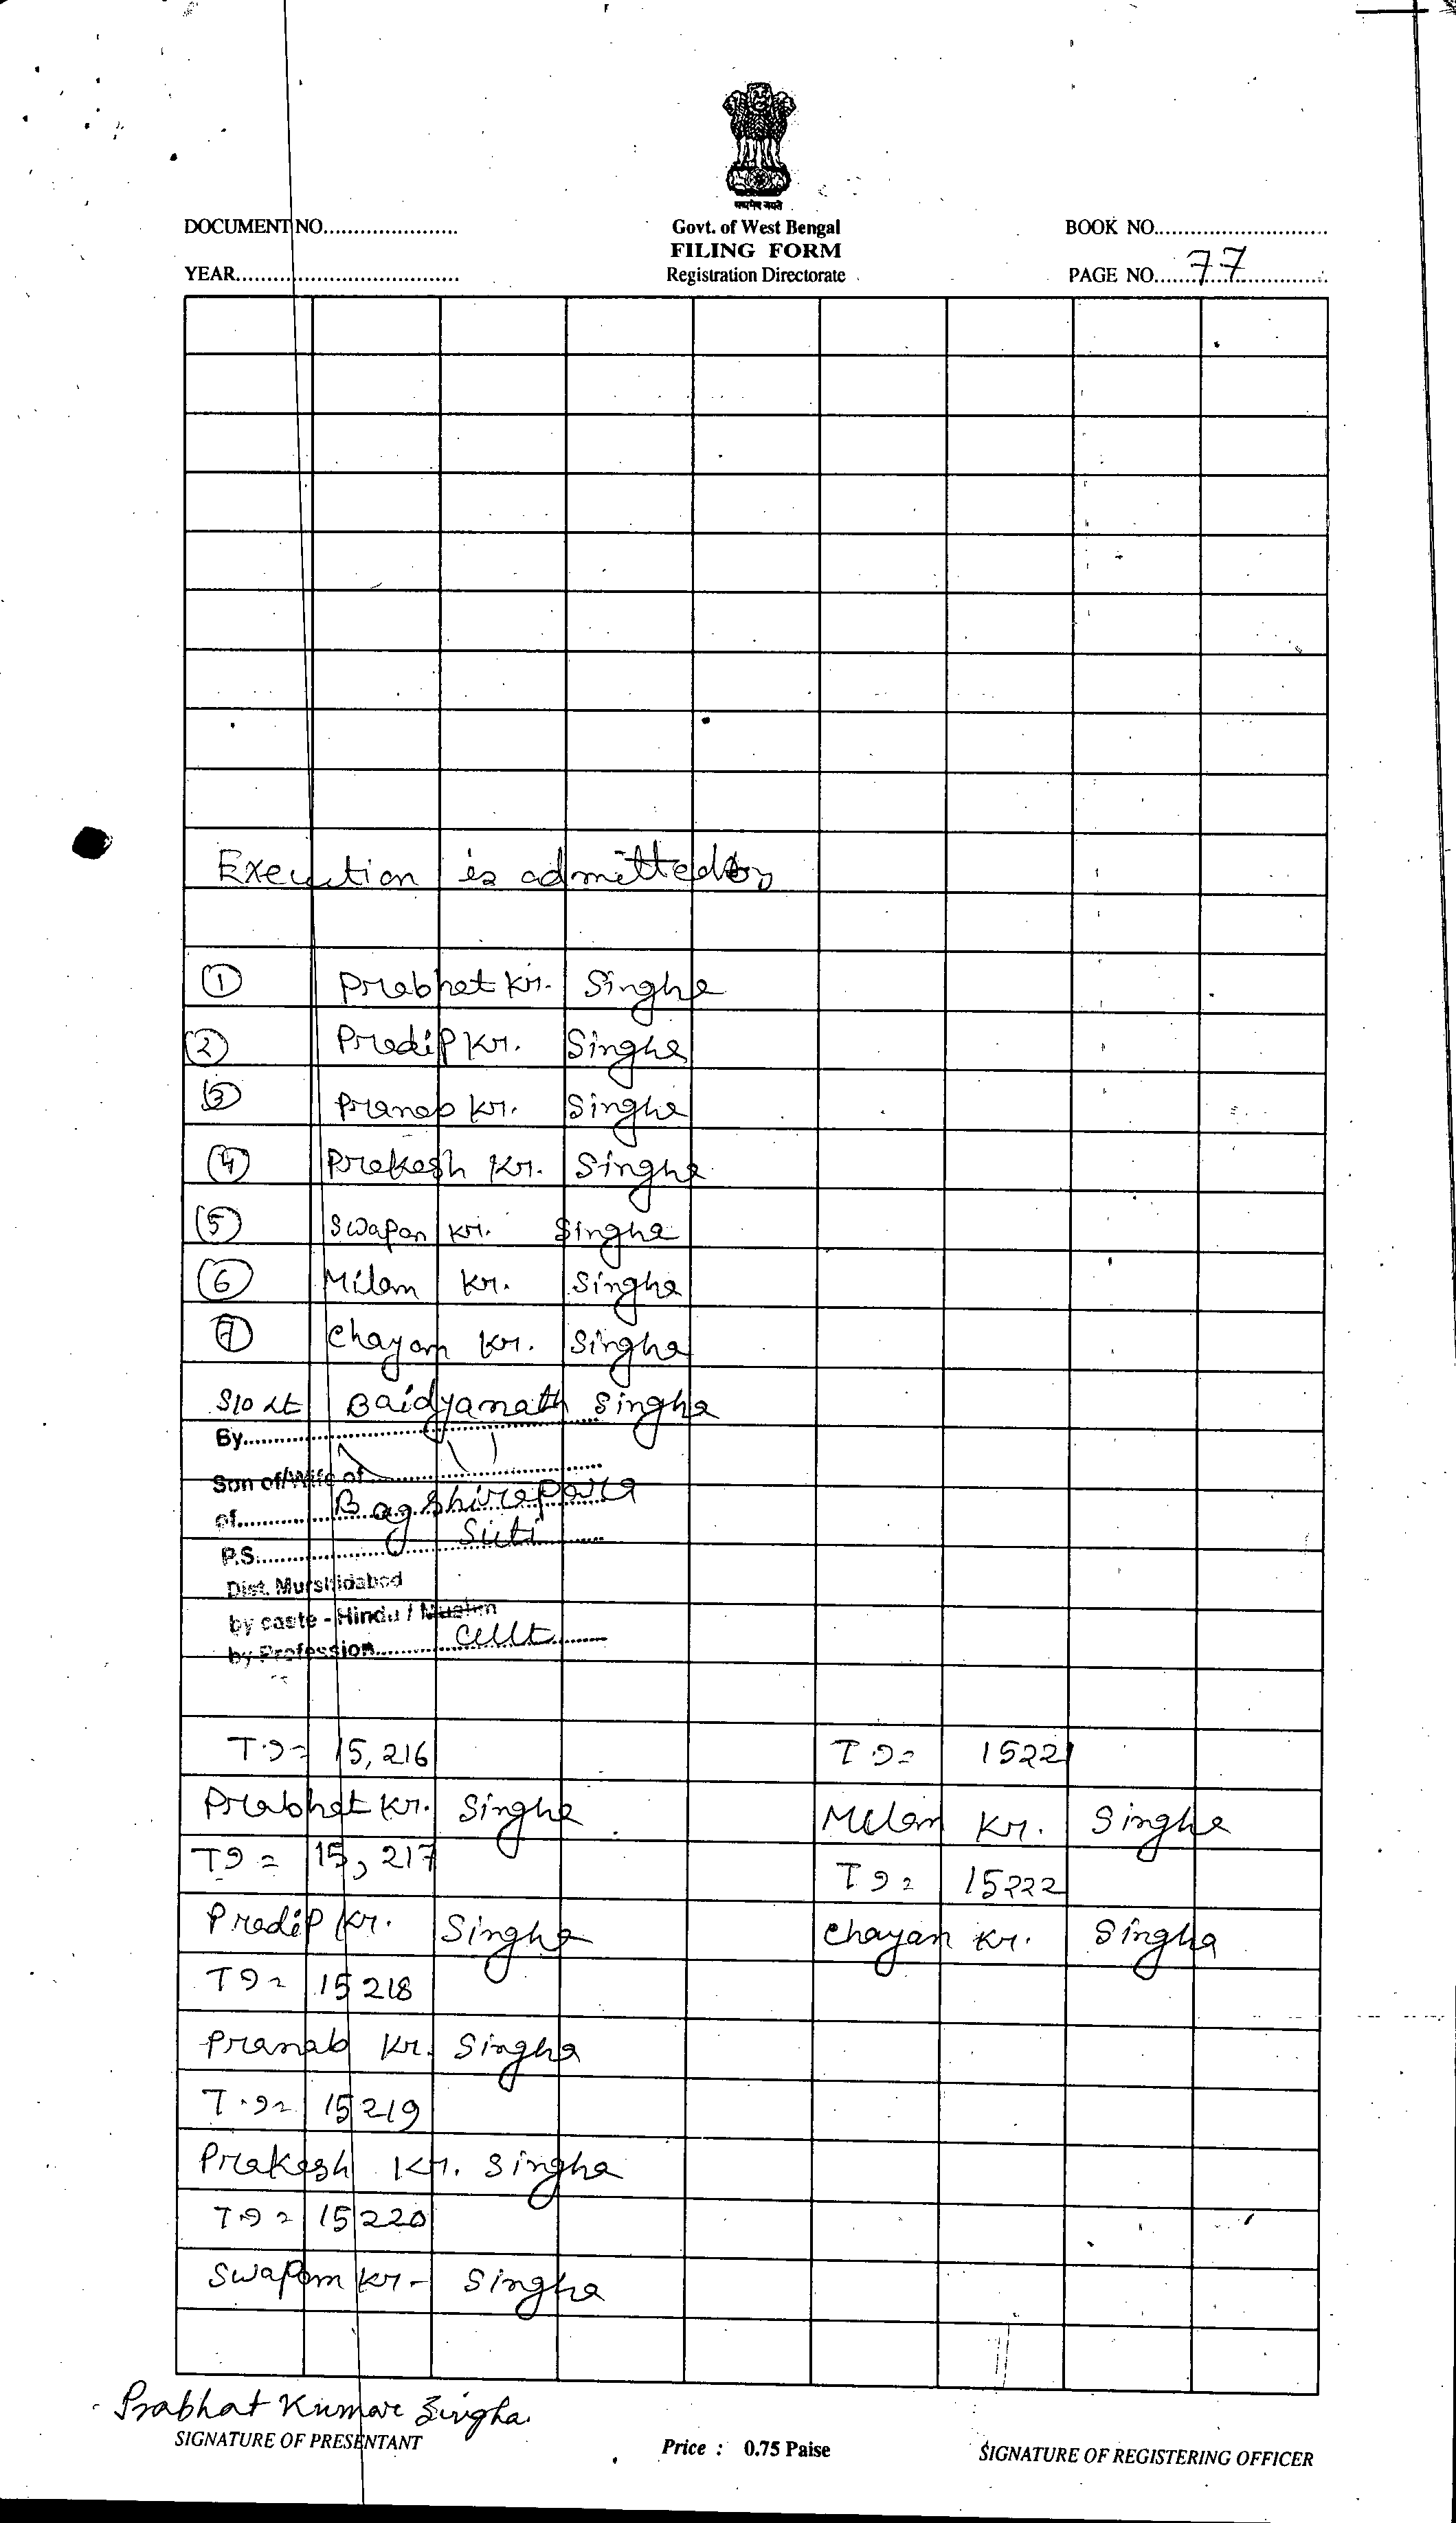 सत्यमेव जयते
DOCUMENT NO......................
Govt. of West Bengal
BOOK NO............................
FILING FORM
YEAR.....................................
Registration Directorate
PAGE NO. 77
Execution is admitted by
① Prabhat Kr. Singha
② Pradip Kr. Singha
③ Pranab Kr. Singha
④ Prakash Kr. Singha
⑤ Swapan Kr. Singha
⑥ Milan Kr. Singha
⑦ Chayan Kr. Singha
S/o Lt Baidyanath Singha
By............
Son of/Wife of............
of Bagshirapara
P.S. Suti
Dist. Murshidabad
by caste - Hindu / Muslim
by Profession Cult
T.I = 15,216
Prabhat Kr. Singha
T I = 15,217
Pradip Kr. Singha
T I = 15218
Pranab Kr. Singha
T.I = 15219
Prakash Kr. Singha
T.I = 15220
Swapan Kr- Singha
T I = 15221
Milan Kr. Singha
T I = 15222
Chayan Kr. Singha
Prabhat Kumar Singha.
SIGNATURE OF PRESENTANT
Price : 0.75 Paise
SIGNATURE OF REGISTERING OFFICER